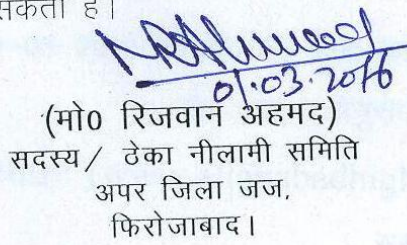 सकता है।
01.03.2016
(मो0 रिजवान अहमद)
सदस्य/ ठेका नीलामी समिति
अपर जिला जज,
फिरोजाबाद।